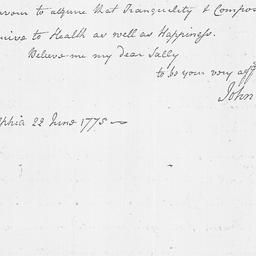 avour to acquire that Tranquility & Compos
ucive to Health as well as Happiness.
Believe me my dear Sally
to be your very aff
John
lphia 22 June 1775 —